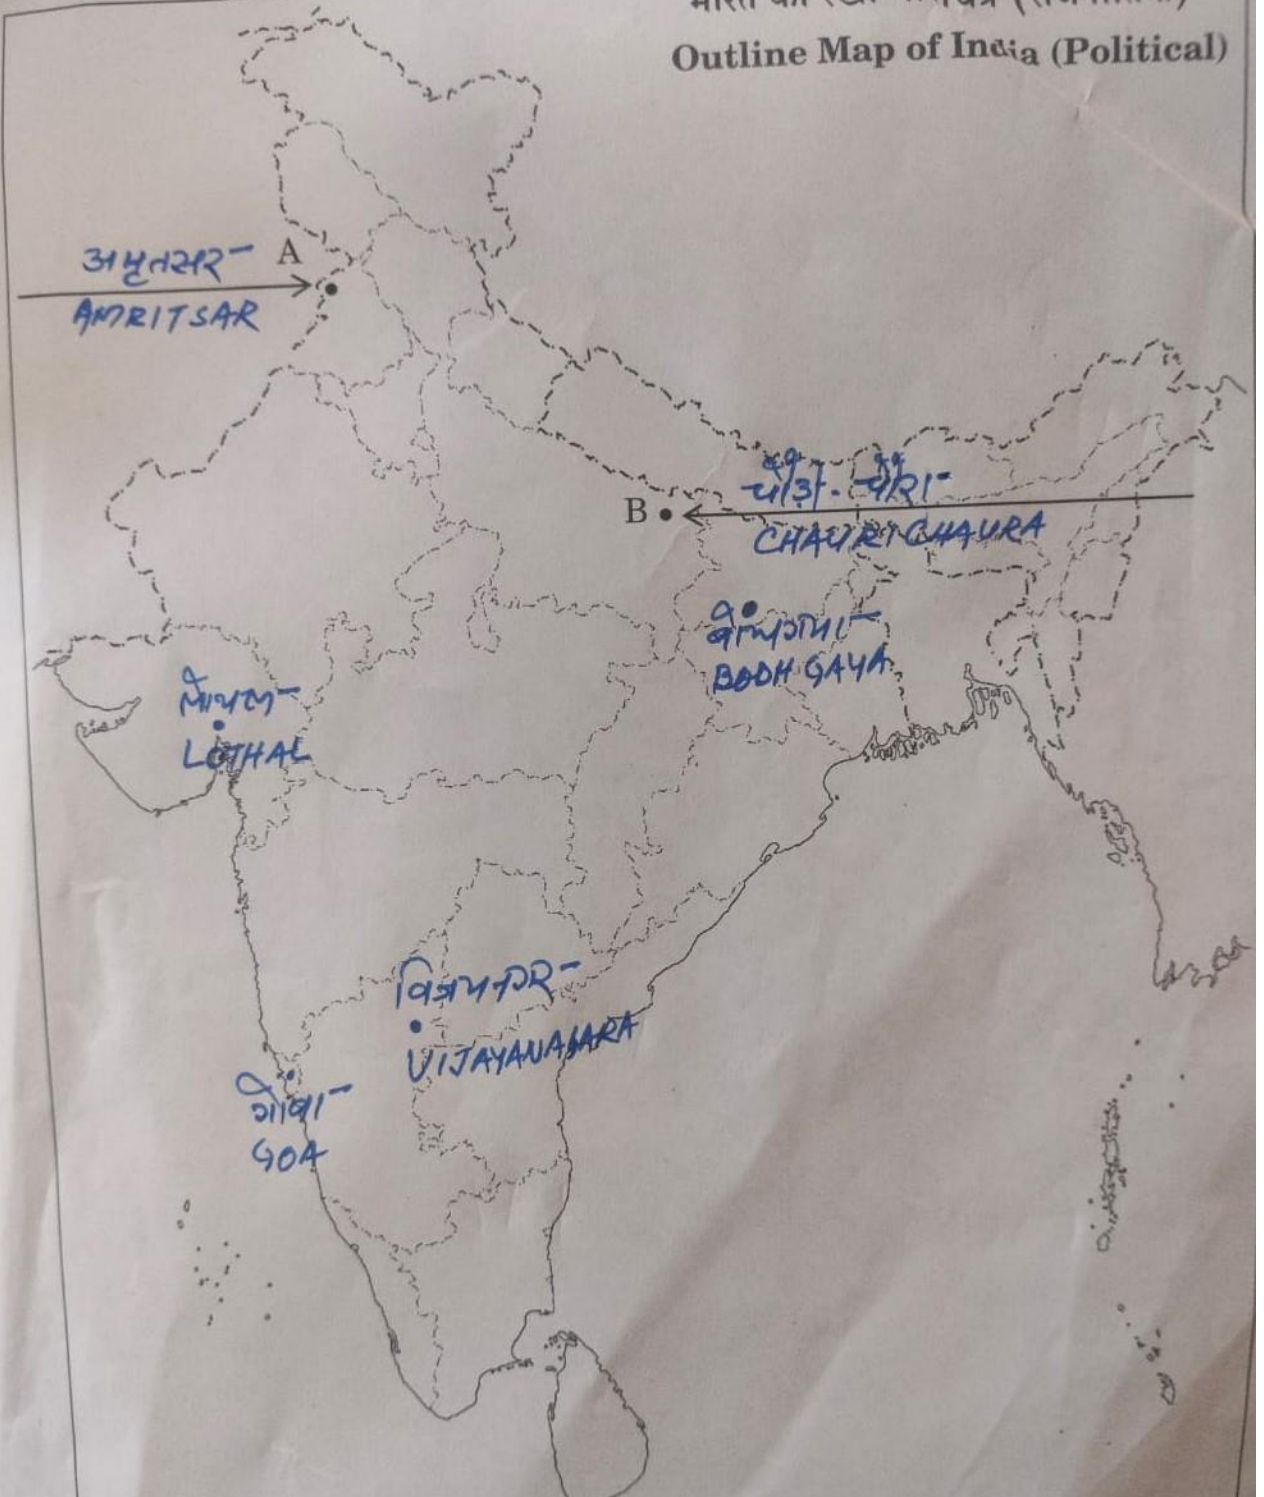 Outline Map of India (Political)
अमृतसर
A
AMRITSAR
B
चौरी-चौरा
CHAURI CHAURA
बोधगया
BODH GAYA
लोथल
LOTHAL
विजयनगर
VIJAYANAGARA
गोवा
GOA